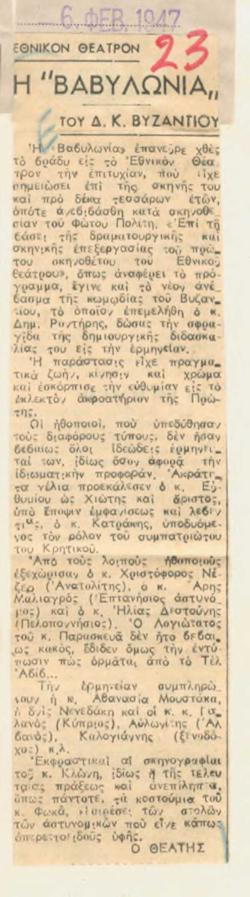 6. ΦΕΒ. 1947
23
ΕΘΝΙΚΟΝ ΘΕΑΤΡΟΝ
Η "ΒΑΒΥΛΩΝΙΑ"
ΤΟΥ Δ. Κ. ΒΥΖΑΝΤΙΟΥ
Ἡ Βαβυλωνία ἐπανεῦρε χθὲς
τὸ βράδυ εἰς τὸ Ἐθνικὸν Θέα-
τρον τὴν ἐπιτυχίαν, ποὺ εἶχε
σημειώσει ἐπὶ τῆς σκηνῆς του
καὶ πρὸ δέκα τεσσάρων ἐτῶν,
ὁπότε ἀνεβιβάσθη κατὰ σκηνοθε-
σίαν τοῦ Φώτου Πολίτη. Ἐπὶ τῇ
βάσει τῆς δραματουργικῆς καὶ
σκηνικῆς ἐπεξεργασίας τοῦ πρώ-
του σκηνοθέτου τοῦ Ἐθνικοῦ
Θεάτρου, ὅπως ἀναφέρει τὸ πρό-
γραμμα, ἔγινε καὶ τὸ νέον ἀνέ-
βασμα τῆς κωμωδίας τοῦ Βυζαν-
τίου, τὸ ὁποῖον ἐπεμελήθη ὁ κ.
Δημ. Ροντήρης, δώσας τὴν σφρα-
γῖδα τῆς δημιουργικῆς διδασκα-
λίας του εἰς τὴν ἑρμηνείαν.
Ἡ παράστασις εἶχε πραγμα-
τικὰ ζωήν, κίνησιν καὶ χρῶμα
καὶ ἐσκόρπισε τὴν εὐθυμίαν εἰς τὸ
ἐκλεκτὸν ἀκροατήριον τῆς Πρώ-
της.
Οἱ ἠθοποιοί, ποὺ ὑπεδύθησαν
τοὺς διαφόρους τύπους, δὲν ἦσαν
βεβαίως ὅλοι ἰδεώδεις ἑρμηνευ-
ταί των, ἰδίως ὅσον ἀφορᾷ τὴν
ἰδιωματικὴν προφοράν. Ἀκράτη-
τα γέλια προεκάλεσεν ὁ κ. Εὐ-
θυμίου ὡς Χιώτης καὶ ἄριστος,
ὑπὸ ἔποψιν ἐμφανίσεως καὶ λεβεν-
τιᾶς, ὁ κ. Κατράκης, ὑποδυόμε-
νος τὸν ρόλον τοῦ συμπατριώτου
του Κρητικοῦ.
Ἀπὸ τοὺς λοιποὺς ἠθοποιοὺς
ἐξεχώρισαν ὁ κ. Χριστόφορος Νέ-
ζερ (Ἀνατολίτης), ὁ κ. Ἄρης
Μαλιαγρὸς (Ἑπτανήσιος ἀστυνό-
μος) καὶ ὁ κ. Ἠλίας Δεστούνης
(Πελοποννήσιος). Ὁ Λογιώτατος
τοῦ κ. Παρασκευᾶ δὲν ἦτο βεβαί-
ως κακός, ἔδιδεν ὅμως τὴν ἐντύ-
πωσιν πὼς ὁρμᾶται ἀπὸ τὸ Τὲλ
Ἀβίβ...
Τὴν ἑρμηνείαν συμπληρώ-
νουν ἡ κ. Ἀθανασία Μουστάκα,
ἡ δνὶς Νενεδάκη καὶ οἱ κ. κ. Γα-
λανὸς (Κύπριος), Αὐλωνίτης (Ἀλ-
βανός), Καλογιάννης (ξενοδό-
χος) κ.λ.
Ἐκφραστικαὶ αἱ σκηνογραφίαι
τοῦ κ. Κλώνη, ἰδίως ἡ τῆς τελευ-
ταίας πράξεως καὶ ἀνεπίληπτα,
ὅπως πάντοτε, τὰ κοστούμια τοῦ
κ. Φωκᾶ, ἐξαιρέσει τῶν στολῶν
τῶν ἀστυνομικῶν ποὺ εἶνε κάπως
ὀπερεττοειδοῦς ὑφῆς.
Ο ΘΕΑΤΗΣ